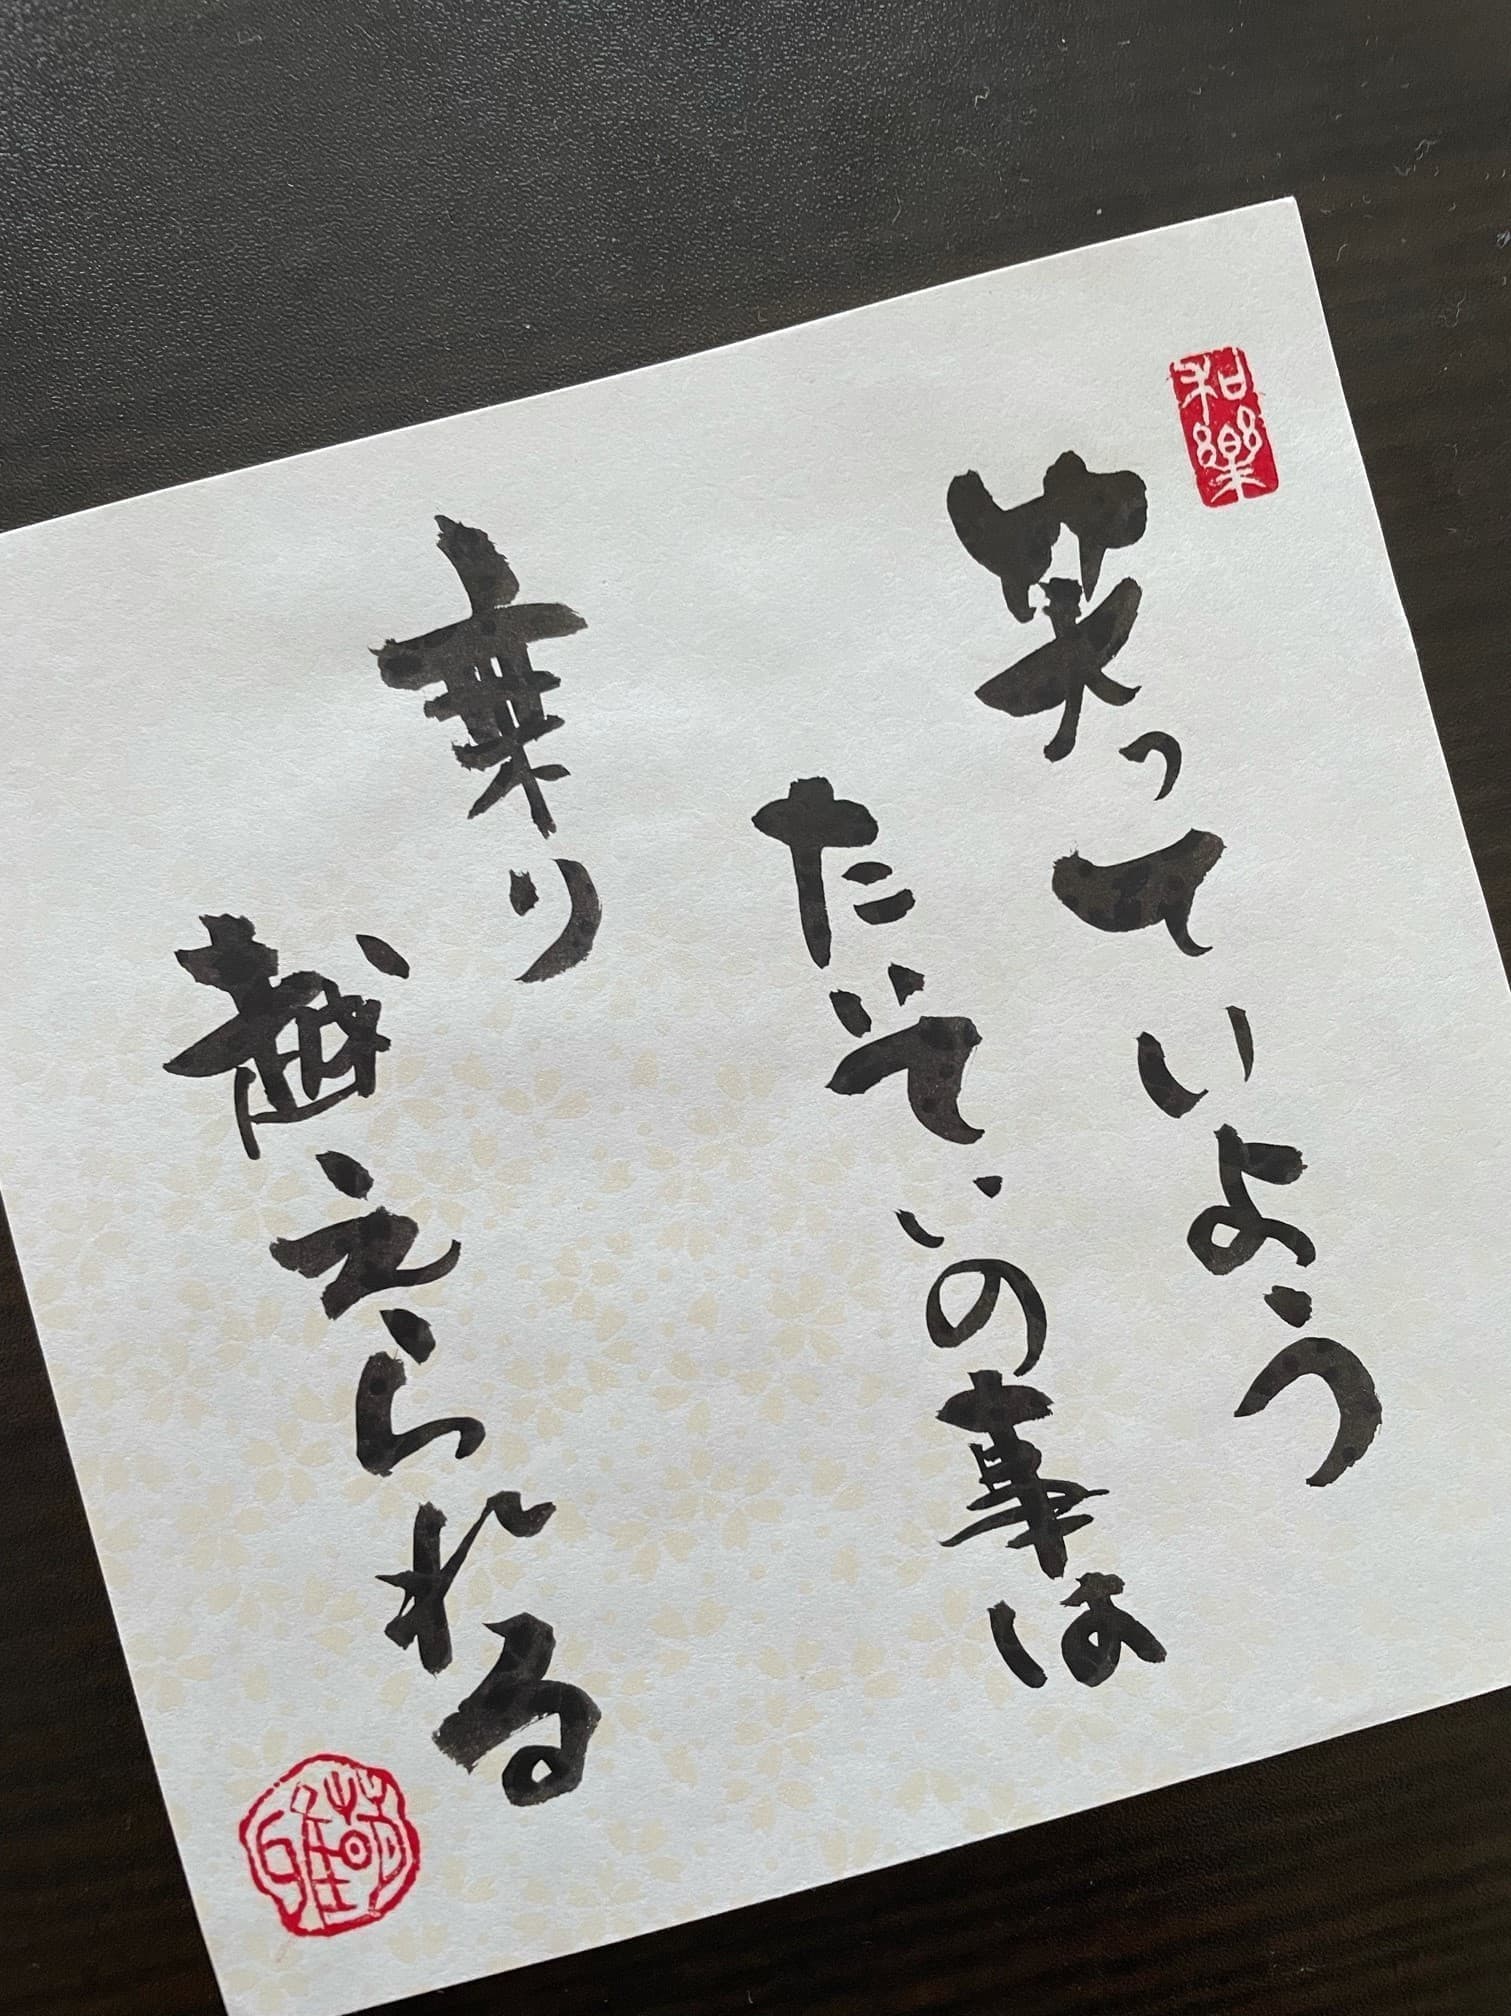 和樂
笑っていよう
たいていの事は
乗り
越えられる